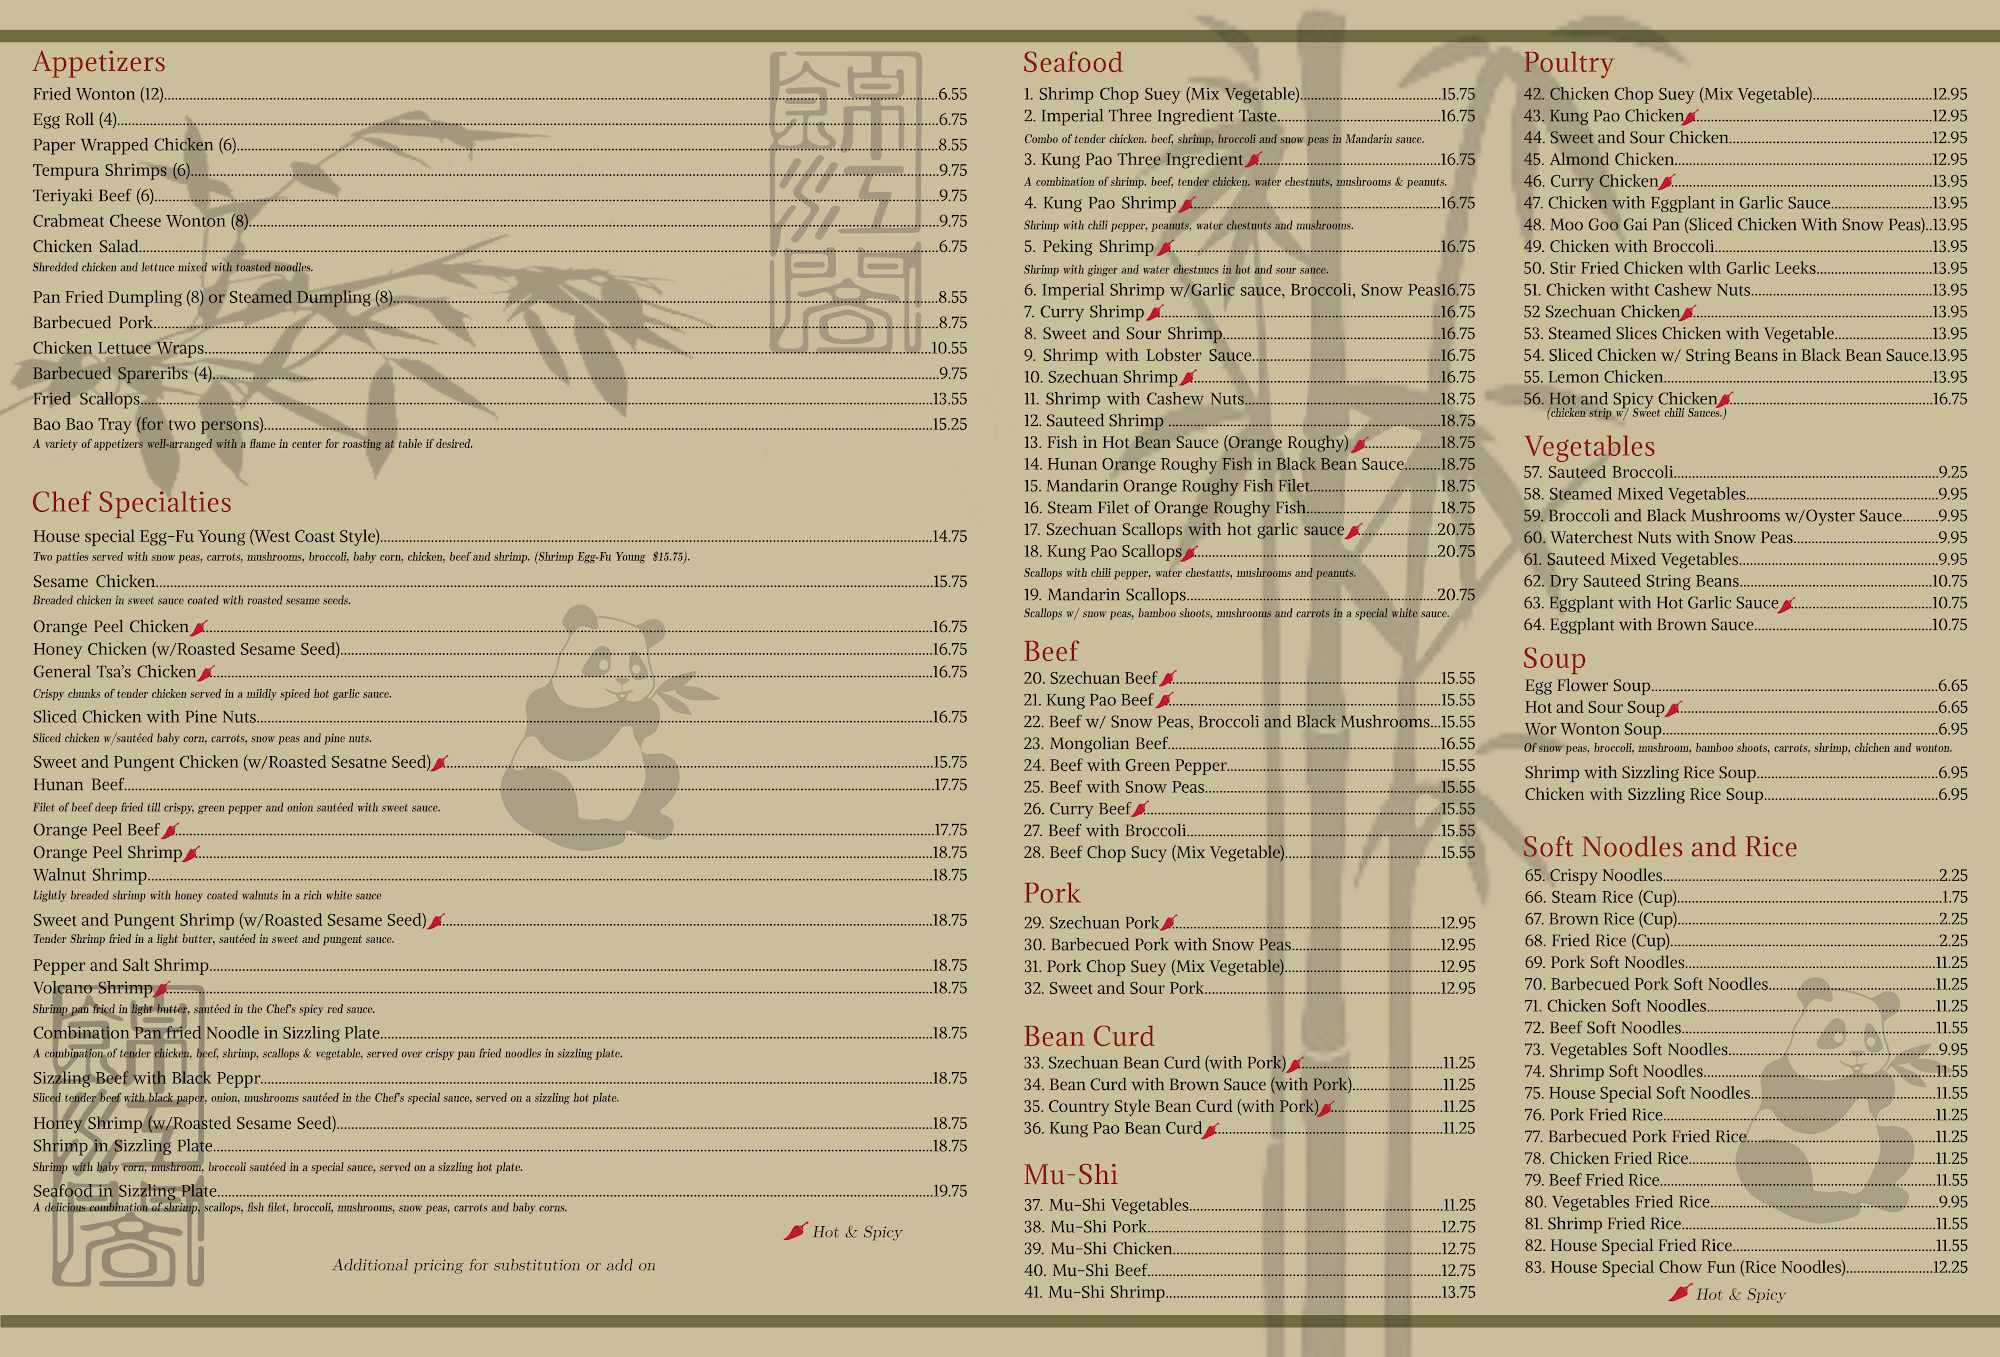 Appetizers
Fried Wonton (12)......6.55
Egg Roll (4)......6.75
Paper Wrapped Chicken (6)......8.55
Tempura Shrimps (6)......9.75
Teriyaki Beef (6)......9.75
Crabmeat Cheese Wonton (8)......9.75
Chicken Salad......6.75
Shredded chicken and lettuce mixed with toasted noodles.
Pan Fried Dumpling (8) or Steamed Dumpling (8)......8.55
Barbecued Pork......8.75
Chicken Lettuce Wraps......10.55
Barbecued Spareribs (4)......9.75
Fried Scallops......13.55
Bao Bao Tray (for two persons)......15.25
A variety of appetizers well-arranged with a flame in center for roasting at table if desired.
Chef Specialties
House special Egg-Fu Young (West Coast Style)......14.75
Two patties served with snow peas, carrots, mushrooms, broccoli, baby corn, chicken, beef and shrimp. (Shrimp Egg-Fu Young $15.75).
Sesame Chicken......15.75
Breaded chicken in sweet sauce coated with roasted sesame seeds.
Orange Peel Chicken......16.75
Honey Chicken (w/Roasted Sesame Seed)......16.75
General Tsa's Chicken......16.75
Crispy chunks of tender chicken served in a mildly spiced hot garlic sauce.
Sliced Chicken with Pine Nuts......16.75
Sliced chicken w/sautéed baby corn, carrots, snow peas and pine nuts.
Sweet and Pungent Chicken (w/Roasted Sesatne Seed)......15.75
Hunan Beef......17.75
Filet of beef deep fried till crispy, green pepper and onion sautéed with sweet sauce.
Orange Peel Beef......17.75
Orange Peel Shrimp......18.75
Walnut Shrimp......18.75
Lightly breaded shrimp with honey coated walnuts in a rich white sauce
Sweet and Pungent Shrimp (w/Roasted Sesame Seed)......18.75
Tender Shrimp fried in a light butter, sautéed in sweet and pungent sauce.
Pepper and Salt Shrimp......18.75
Volcano Shrimp......18.75
Shrimp pan fried in light butter, sautéed in the Chef's spicy red sauce.
Combination Pan fried Noodle in Sizzling Plate......18.75
A combination of tender chicken, beef, shrimp, scallops & vegetable, served over crispy pan fried noodles in sizzling plate.
Sizzling Beef with Black Peppr......18.75
Sliced tender beef with black paper, onion, mushrooms sautéed in the Chef's special sauce, served on a sizzling hot plate.
Honey Shrimp (w/Roasted Sesame Seed)......18.75
Shrimp in Sizzling Plate......18.75
Shrimp with baby corn, mushroom, broccoli sautéed in a special sauce, served on a sizzling hot plate.
Seafood in Sizzling Plate......19.75
A delicious combination of shrimp, scallops, fish filet, broccoli, mushrooms, snow peas, carrots and baby corns.
Hot & Spicy
Additional pricing for substitution or add on
Seafood
1. Shrimp Chop Suey (Mix Vegetable)......15.75
2. Imperial Three Ingredient Taste......16.75
Combo of tender chicken. beef, shrimp, broccoli and snow peas in Mandarin sauce.
3. Kung Pao Three Ingredient......16.75
A combination of shrimp. beef, tender chicken. water chestnuts, mushrooms & peanuts.
4. Kung Pao Shrimp......16.75
Shrimp with chili pepper, peanuts, water chestnuts and mushrooms.
5. Peking Shrimp......16.75
Shrimp with ginger and water chestnucs in hot and sour sauce.
6. Imperial Shrimp w/Garlic sauce, Broccoli, Snow Peas16.75
7. Curry Shrimp......16.75
8. Sweet and Sour Shrimp......16.75
9. Shrimp with Lobster Sauce......16.75
10. Szechuan Shrimp......16.75
11. Shrimp with Cashew Nuts......18.75
12. Sauteed Shrimp......18.75
13. Fish in Hot Bean Sauce (Orange Roughy)......18.75
14. Hunan Orange Roughy Fish in Black Bean Sauce......18.75
15. Mandarin Orange Roughy Fish Filet......18.75
16. Steam Filet of Orange Roughy Fish......18.75
17. Szechuan Scallops with hot garlic sauce......20.75
18. Kung Pao Scallops......20.75
Scallops with chili pepper, water chestauts, mushrooms and peanuts.
19. Mandarin Scallops......20.75
Scallops w/ snow peas, bamboo shoots, mushrooms and carrots in a special white sauce.
Beef
20. Szechuan Beef......15.55
21. Kung Pao Beef......15.55
22. Beef w/ Snow Peas, Broccoli and Black Mushrooms...15.55
23. Mongolian Beef......16.55
24. Beef with Green Pepper......15.55
25. Beef with Snow Peas......15.55
26. Curry Beef......15.55
27. Beef with Broccoli......15.55
28. Beef Chop Sucy (Mix Vegetable)......15.55
Pork
29. Szechuan Pork......12.95
30. Barbecued Pork with Snow Peas......12.95
31. Pork Chop Suey (Mix Vegetable)......12.95
32. Sweet and Sour Pork......12.95
Bean Curd
33. Szechuan Bean Curd (with Pork)......11.25
34. Bean Curd with Brown Sauce (with Pork)......11.25
35. Country Style Bean Curd (with Pork)......11.25
36. Kung Pao Bean Curd......11.25
Mu-Shi
37. Mu-Shi Vegetables......11.25
38. Mu-Shi Pork......12.75
39. Mu-Shi Chicken......12.75
40. Mu-Shi Beef......12.75
41. Mu-Shi Shrimp......13.75
Poultry
42. Chicken Chop Suey (Mix Vegetable)......12.95
43. Kung Pao Chicken......12.95
44. Sweet and Sour Chicken......12.95
45. Almond Chicken......12.95
46. Curry Chicken......13.95
47. Chicken with Eggplant in Garlic Sauce......13.95
48. Moo Goo Gai Pan (Sliced Chicken With Snow Peas)..13.95
49. Chicken with Broccoli......13.95
50. Stir Fried Chicken wlth Garlic Leeks......13.95
51. Chicken witht Cashew Nuts......13.95
52 Szechuan Chicken......13.95
53. Steamed Slices Chicken with Vegetable......13.95
54. Sliced Chicken w/ String Beans in Black Bean Sauce.13.95
55. Lemon Chicken......13.95
56. Hot and Spicy Chicken......16.75
(chicken strip w/ Sweet chili Sauces.)
Vegetables
57. Sauteed Broccoli......9.25
58. Steamed Mixed Vegetables......9.95
59. Broccoli and Black Mushrooms w/Oyster Sauce......9.95
60. Waterchest Nuts with Snow Peas......9.95
61. Sauteed Mixed Vegetables......9.95
62. Dry Sauteed String Beans......10.75
63. Eggplant with Hot Garlic Sauce......10.75
64. Eggplant with Brown Sauce......10.75
Soup
Egg Flower Soup......6.65
Hot and Sour Soup......6.65
Wor Wonton Soup......6.95
Of snow peas, broccoli, mushroom, bamboo shoots, carrots, shrimp, chichen and wonton.
Shrimp with Sizzling Rice Soup......6.95
Chicken with Sizzling Rice Soup......6.95
Soft Noodles and Rice
65. Crispy Noodles......2.25
66. Steam Rice (Cup)......1.75
67. Brown Rice (Cup)......2.25
68. Fried Rice (Cup)......2.25
69. Pork Soft Noodles......11.25
70. Barbecued Pork Soft Noodles......11.25
71. Chicken Soft Noodles......11.25
72. Beef Soft Noodles......11.55
73. Vegetables Soft Noodles......9.95
74. Shrimp Soft Noodles......11.55
75. House Special Soft Noodles......11.55
76. Pork Fried Rice......11.25
77. Barbecued Pork Fried Rice......11.25
78. Chicken Fried Rice......11.25
79. Beef Fried Rice......11.55
80. Vegetables Fried Rice......9.95
81. Shrimp Fried Rice......11.55
82. House Special Fried Rice......11.55
83. House Special Chow Fun (Rice Noodles)......12.25
Hot & Spicy